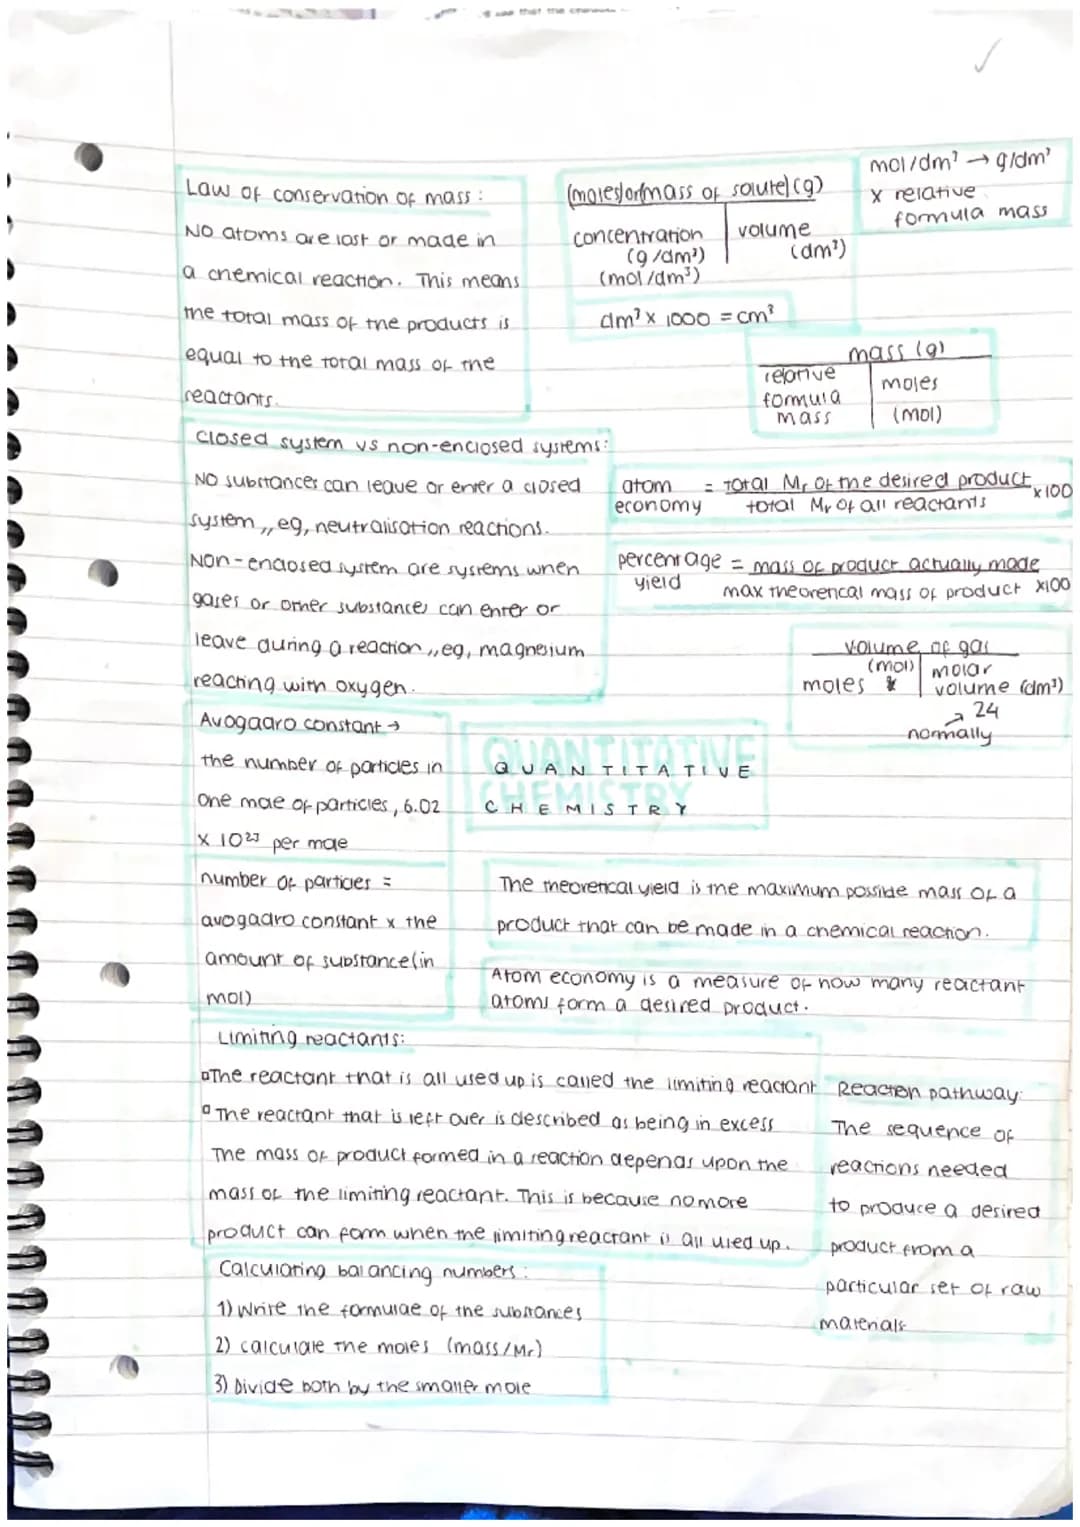 Law of conservation of mass:
No atoms are lost or made in
a chemical reaction. This means
the total mass of the products is
equal to the total mass of the
reactants.
(moles)or(mass of solute)(g)
concentration
(g/dm³)
(mol/dm³)
volume
(dm³)
mol/dm³ → g/dm³
x relative
formula mass
dm³ x 1000 = cm³
mass (g)
relative
formula
mass
moles
(mol)
Closed system vs non-enclosed systems:
No substances can leave or enter a closed
system,, eg, neutralisation reactions.
Non-enclosed system are systems when
gases or other substances can enter or
leave during a reaction,, eg, magnesium
reacting with oxygen.
atom = total Mr of the desired product x100
economy total Mr of all reactants
percentage = mass of product actually made
yield max theoretical mass of product x100
volume of gas
(mol)
moles
molar
volume (dm³)
→ 24
normally
Avogadro constant →
the number of particles in
one mole of particles, 6.02
x 10²³ per mole
QUANTITATIVE
CHEMISTRY
number of particles =
avogadro constant x the
amount of substance (in
mol)
The theoretical yield is the maximum possible mass of a
product that can be made in a chemical reaction.
Atom economy is a measure of how many reactant
atoms form a desired product.
Limiting reactants:
▫The reactant that is all used up is called the limiting reactant
▫The reactant that is left over is described as being in excess
The mass of product formed in a reaction depends upon the
mass of the limiting reactant. This is because no more
product can form when the limiting reactant is all used up.
Reaction pathway:
The sequence of
reactions needed
to produce a desired
product from a
particular set of raw
materials
Calculating balancing numbers:
1) Write the formulae of the substances
2) calculate the moles (mass/Mr)
3) Divide both by the smaller mole